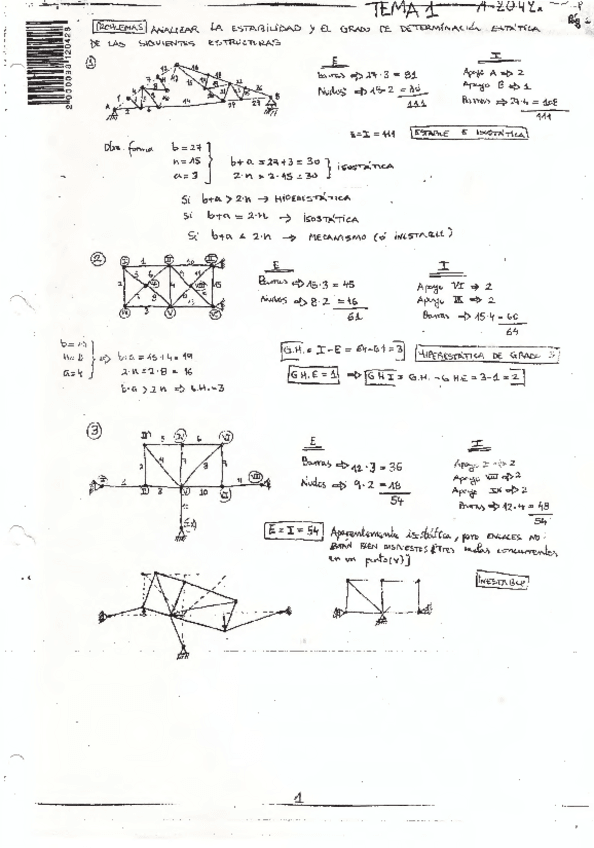 TEMA 1
A-2042a
Pág
2 000098 120428
PROBLEMAS ANALIZAR LA ESTABILIDAD Y EL GRADO DE DETERMINACIÓN ESTÁTICA
DE LAS SIGUIENTES ESTRUCTURAS
1
E
Barras ⇒ 27·3 = 81
Nudos ⇒ 15·2 = 30
111
I
Apoyo A ⇒ 2
Apoyo B ⇒ 1
Barras ⇒ 27·4 = 108
111
E = I = 111 ESTABLE E ISOSTÁTICA
Otra forma
b = 27
n = 15
a = 3
b+a = 27+3 = 30
2·n = 2·15 = 30
ISOSTÁTICA
Si b+a > 2·n → HIPERESTÁTICA
Si b+a = 2·n → ISOSTÁTICA
Si b+a < 2·n → MECANISMO (ó INESTABLE)
2
E
Barras ⇒ 15·3 = 45
Nudos ⇒ 8·2 = 16
61
I
Apoyo VI ⇒ 2
Apoyo III ⇒ 2
Barras ⇒ 15·4 = 60
64
n = 8
a = 4
⇒ b+a = 15+4 = 19
2·n = 2·8 = 16
b+a > 2n ⇒ G.H. = 3
G.H. = I - E = 64-61 = 3
HIPERESTÁTICA DE GRADO 3
G.H.E = 1 ⇒ G.H.I = G.H. - G.H.E = 3-1 = 2
3
E
Barras ⇒ 12·3 = 36
Nudos ⇒ 9·2 = 18
54
I
Apoyo I ⇒ 2
Apoyo VIII ⇒ 2
Apoyo IX ⇒ 2
Barras ⇒ 12·4 = 48
54
E = I = 54 Aparentemente isostática, pero enlaces no
están bien dispuestos concurrentes
en un punto (V)]
INESTABLE
1